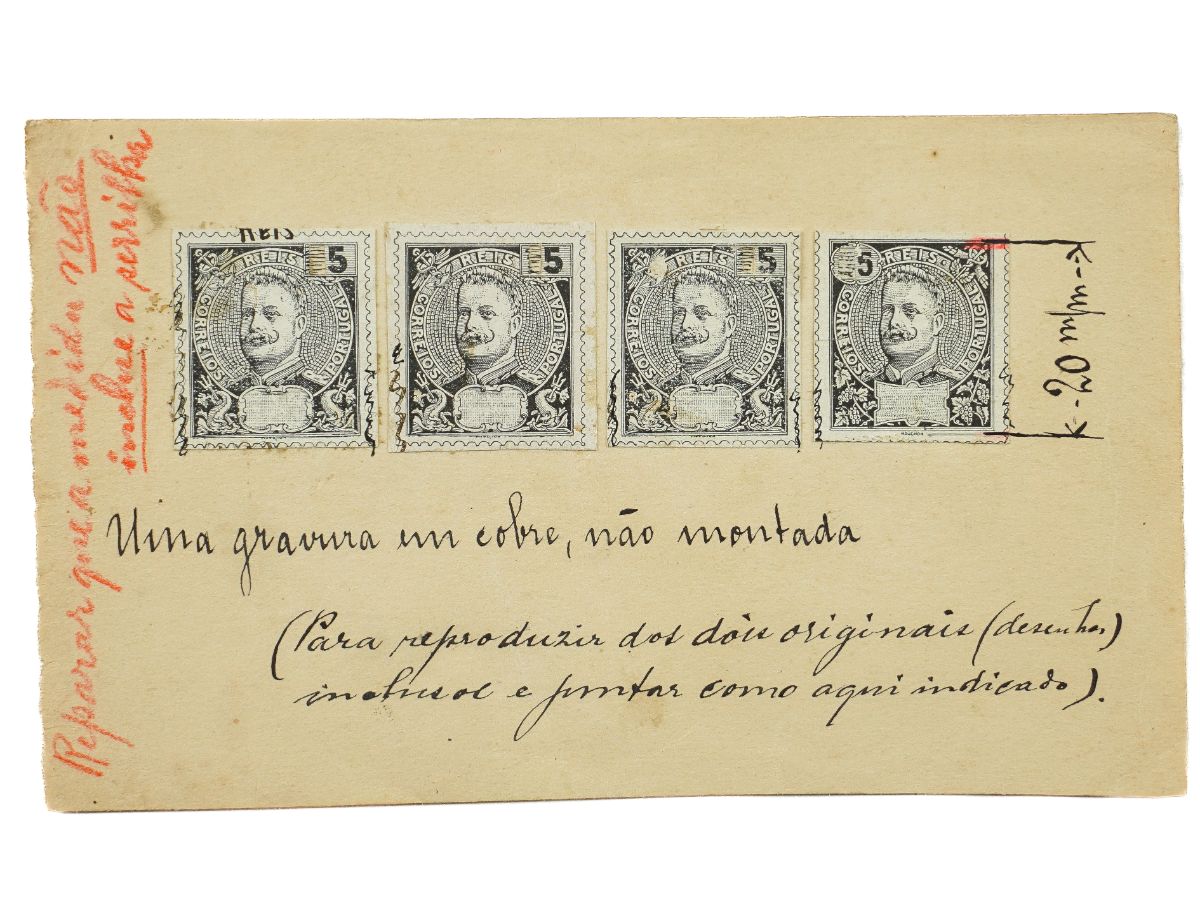 Reparar que a medida não
inclue a serrilha
REIS
REIS 5
CORREIOS PORTUGAL
REIS 5
CORREIOS PORTUGAL
REIS 5
CORREIOS PORTUGAL
5 REIS
CORREIOS PORTUGAL
MOUCHON
20 m/m
Uma gravura em cobre, não montada
(Para reproduzir dos dois originais (desenhos)
inclusos e juntar como aqui indicado).